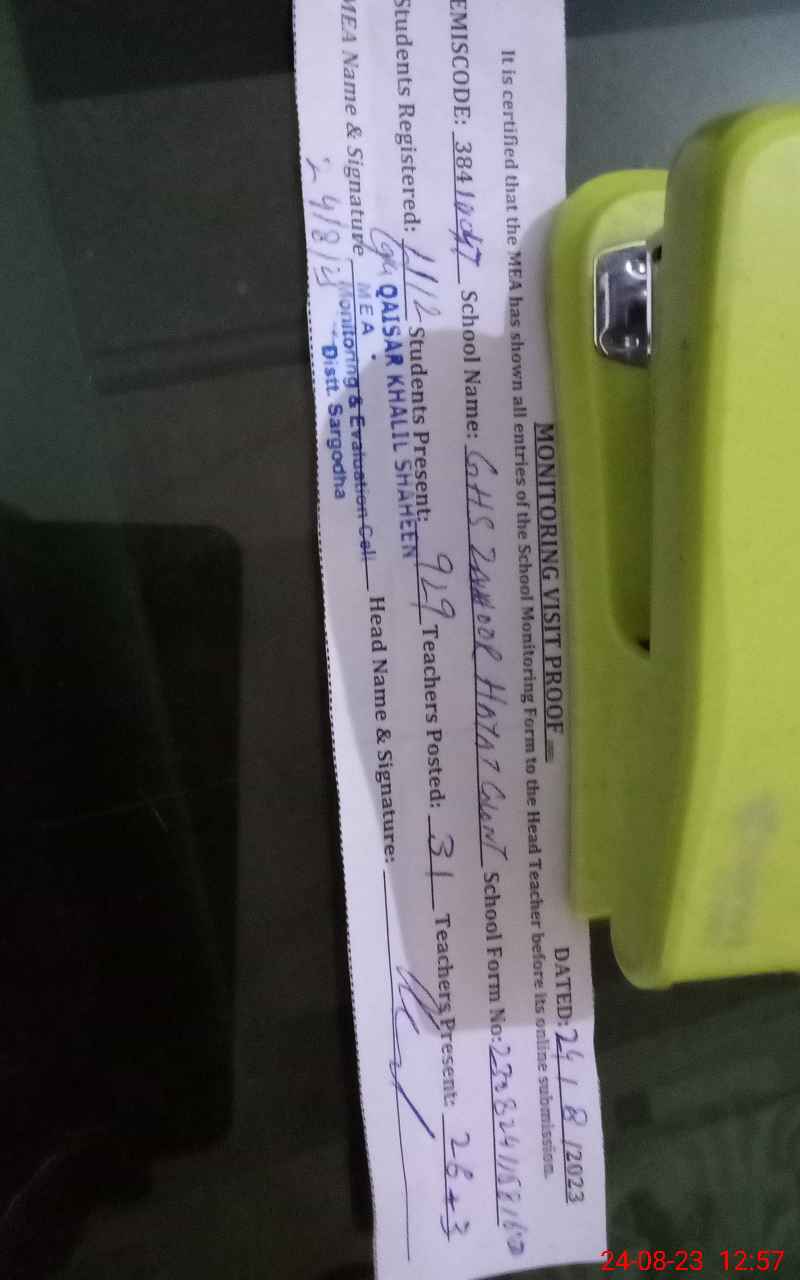 MONITORING VISIT PROOF DATED: 24 / 8 /2023
It is certified that the MEA has shown all entries of the School Monitoring Form to the Head Teacher before its online submission.
EMISCODE: 384 School Name: GHS ZAHOOR HAYAT School Form No:
Students Registered: 1112 Students Present: 929 Teachers Posted: 31 Teachers Present: 28+3
QAISAR KHALIL SHAHEEN
MEA
MEA Name & Signature Monitoring & Evaluation Cell Head Name & Signature:
Distt. Sargodha
24/8/23
24-08-23 12:57